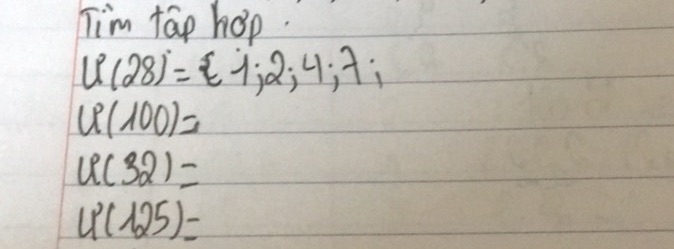 Tìm tập hợp.
Ư(28) = { 1; 2; 4; 7;
Ư(100) =
Ư(32) =
Ư(125) =